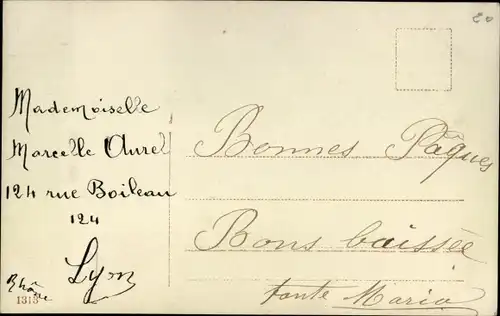 Mademoiselle
Marcelle Aurel
124 rue Boileau
124
Lyon
Rhône
1313
Bonnes Pâques
Bons baissée
tante Maria